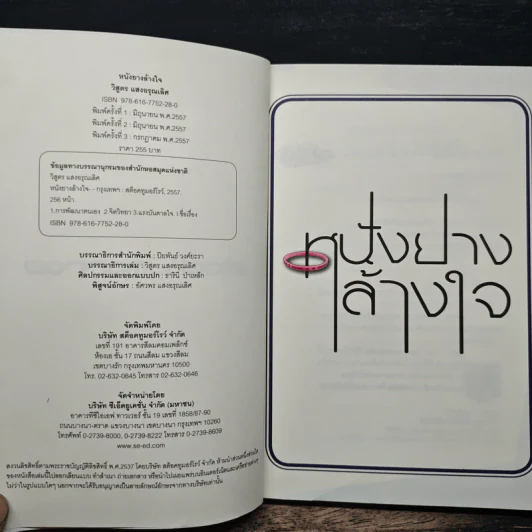 หนังยางล้างใจ
วิสูตร แสงอรุณเลิศ
ISBN 978-616-7752-28-0
พิมพ์ครั้งที่ 1 : มิถุนายน พ.ศ.2557
พิมพ์ครั้งที่ 2 : มิถุนายน พ.ศ.2557
พิมพ์ครั้งที่ 3 : กรกฎาคม พ.ศ.2557
ราคา 255 บาท
ข้อมูลทางบรรณานุกรมของสำนักหอสมุดแห่งชาติ
วิสูตร แสงอรุณเลิศ
หนังยางล้างใจ.- - กรุงเทพฯ : สต็อคทูมอร์โรว์, 2557.
256 หน้า
1.การพัฒนาตนเอง 2.จิตวิทยา 3.แรงบันดาลใจ. I ชื่อเรื่อง
ISBN 978-616-7752-28-0
บรรณาธิการสำนักพิมพ์ : ปิยพันธ์ วงศ์ยะรา
บรรณาธิการเล่ม : วิสูตร แสงอรุณเลิศ
ศิลปกรรมและออกแบบปก : ธาริณี ป่าเหล็ก
พิสูจน์อักษร : อัศวพร แสงอรุณเลิศ
จัดพิมพ์โดย
บริษัท สต็อคทูมอร์โรว์ จำกัด
เลขที่ 191 อาคารสีลมคอมเพล็กซ์
ห้องเอ ชั้น 17 ถนนสีลม แขวงสีลม
เขตบางรัก กรุงเทพมหานคร 10500
โทร. 02-632-0645 โทรสาร 02-632-0646
จัดจำหน่ายโดย
บริษัท ซีเอ็ดยูเคชั่น จำกัด (มหาชน)
อาคารทีซีไอเอฟ ทาวเวอร์ ชั้น 19 เลขที่ 1858/87-90
ถนนบางนา-ตราด แขวงบางนา เขตบางนา กรุงเทพฯ 10260
โทรศัพท์ 0-2739-8000, 0-2739-8222 โทรสาร 0-2739-8609
www.se-ed.com
สงวนลิขสิทธิ์ตามพระราชบัญญัติลิขสิทธิ์ พ.ศ.2537 โดยบริษัท สต็อคทูมอร์โรว์ จำกัด ห้ามนำส่วนหนึ่งส่วนใด
ของหนังสือเล่มนี้ไปลอกเลียนแบบ ทำสำเนา ถ่ายเอกสาร หรือนำไปเผยแพร่บนอินเตอร์เน็ตและเครือข่ายต่างๆ
ไม่ว่าในรูปแบบใดๆ นอกจากจะได้รับอนุญาตเป็นลายลักษณ์อักษรจากทางบริษัทเท่านั้น
หนังยาง
ล้างใจ